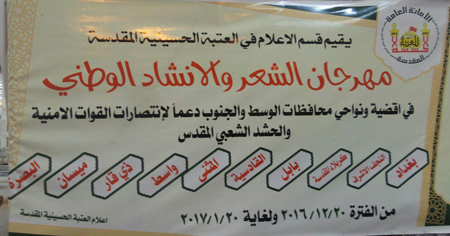 الأمانة العامة
للعتبة
الحسينية
المقدسة
يقيم قسم الاعلام في العتبة الحسينية المقدسة
مهرجان الشعر والانشاد الوطني
في اقضية ونواحي محافظات الوسط والجنوب دعماً لإنتصارات القوات الامنية
والحشد الشعبي المقدس
بغداد
النجف الاشرف
كربلاء المقدسة
بابل
القادسية
المثنى
واسط
ذي قار
ميسان
البصرة
من الفترة ٢٠١٦/١٢/٢٠ ولغاية ٢٠١٧/١/٢٠
اعلام العتبة الحسينية المقدسة